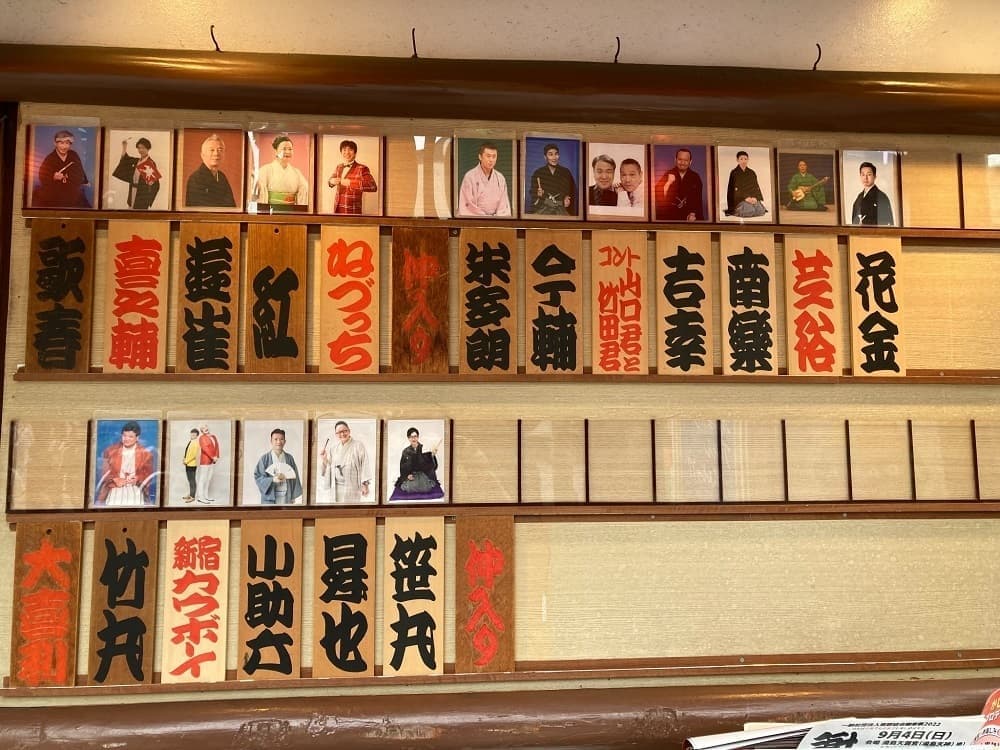 花金
南樂
吉幸
コント
山口君と
竹田君
今輔
米多朗
仲入り
ねづっち
紅
遊雀
喜之輔
歌春
仲入り
笹丸
昇也
小助六
新宿
カウボーイ
竹丸
大喜利
9月4日(日)